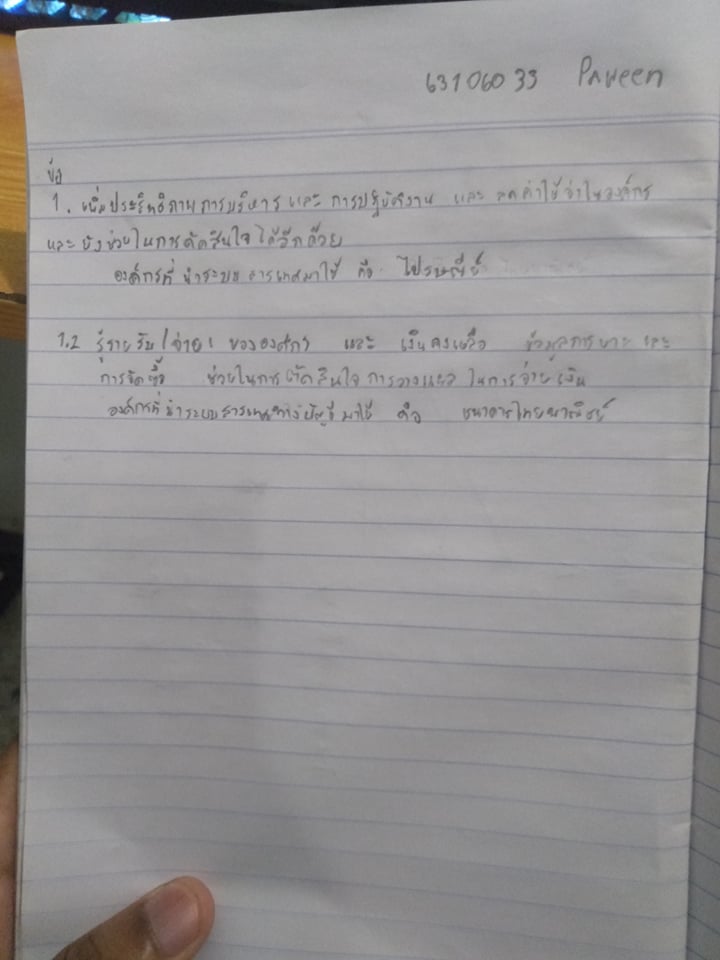 63106033 Paween
ข้อ
1. เพิ่มประสิทธิภาพการบริหาร และ การปฏิบัติงาน และ ลดค่าใช้จ่ายในองค์กร
และ ยังช่วยในการตัดสินใจ ได้อีกด้วย
องค์กรที่ นำระบบ สารเทศมาใช้ คือ ไปรษณีย์
1.2 รู้รายรับ/จ่าย ขององค์กร และ เงินคงเหลือ ข้อมูลการขาย และ
การจัดซื้อ ช่วยในการตัดสินใจ การวางแผล ในการจ่ายเงิน
องค์กรที่ นำระบบสารเทศทางบัญชี มาใช้ คือ ธนาคารไทยพาณิชย์